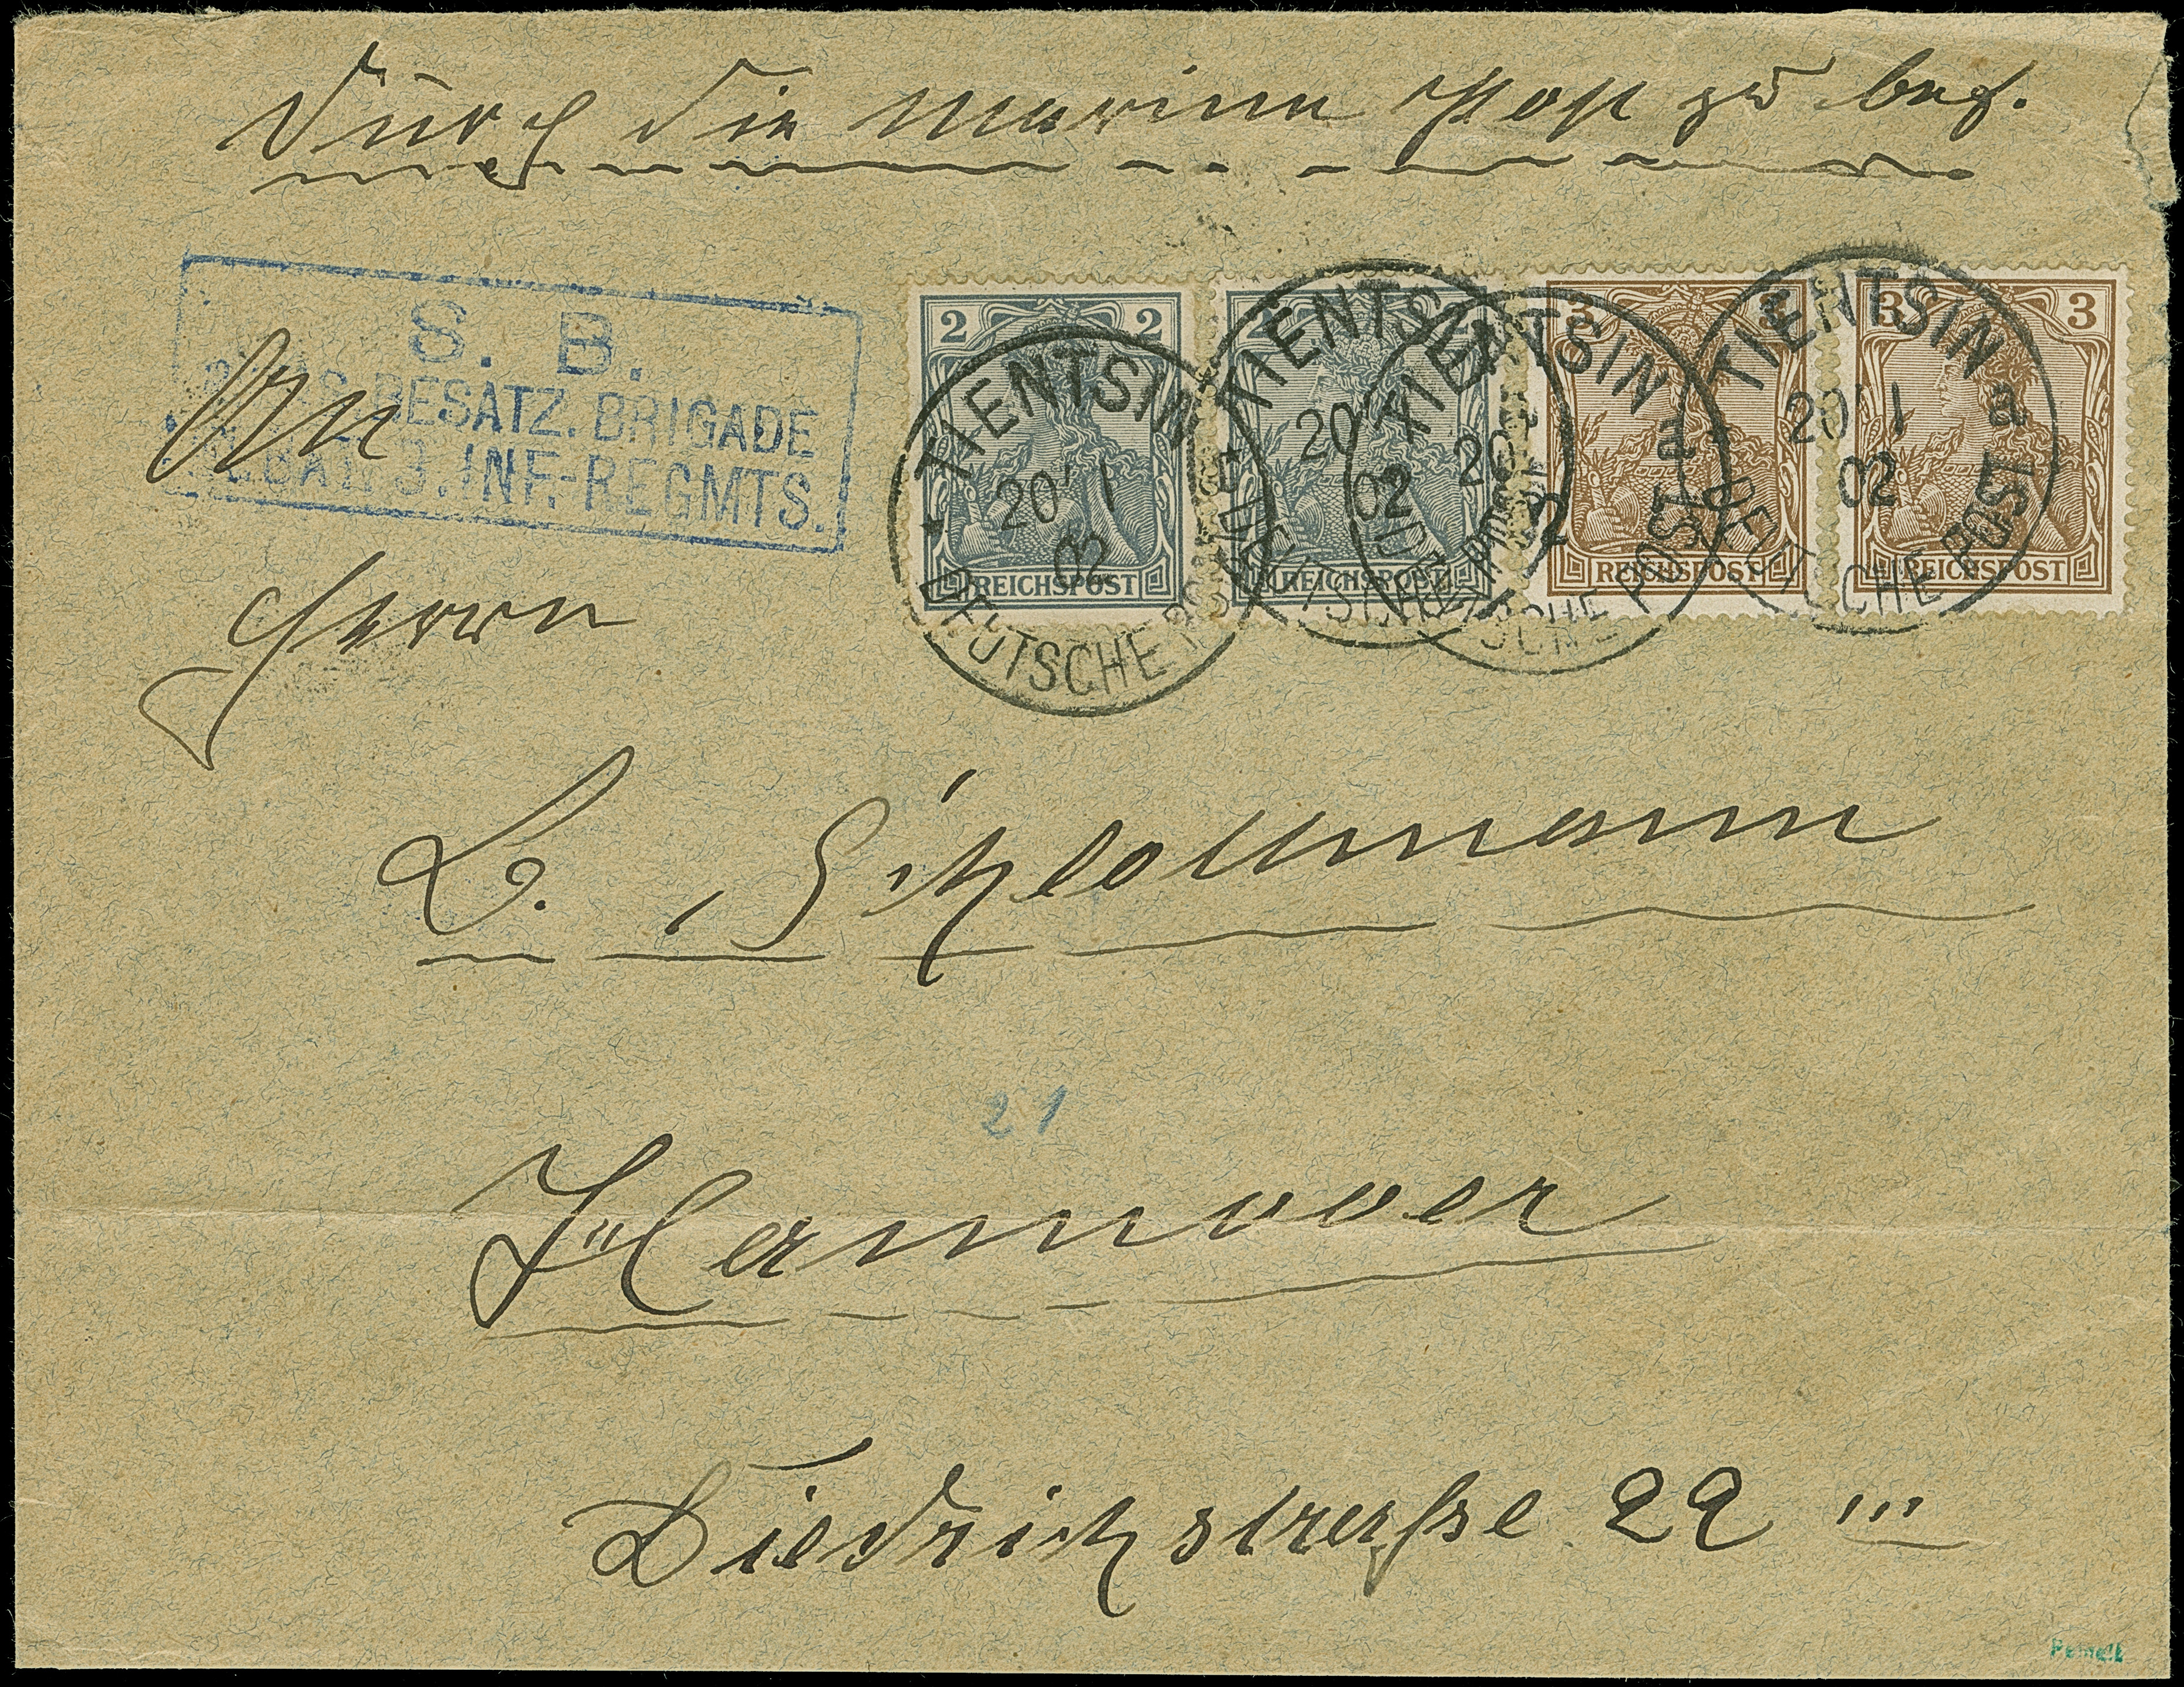 Durch die Marine Post zu bef.
S. B.
BESATZ. BRIGADE
3. INF.-REGMTS.
An
2 2
REICHSPOST
2 2
3 3
REICHSPOST
3 3
REICHSPOST
TIENTSIN
20 1
02
DEUTSCHE POST
TIENTSIN
20 1
02
DEUTSCHE POST
TIENTSIN a
20 1
02
DEUTSCHE POST
TIENTSIN a
20 1
02
DEUTSCHE POST
Herrn
L. Schlottmann
21
Hannover
Diedrichstraße 22 III